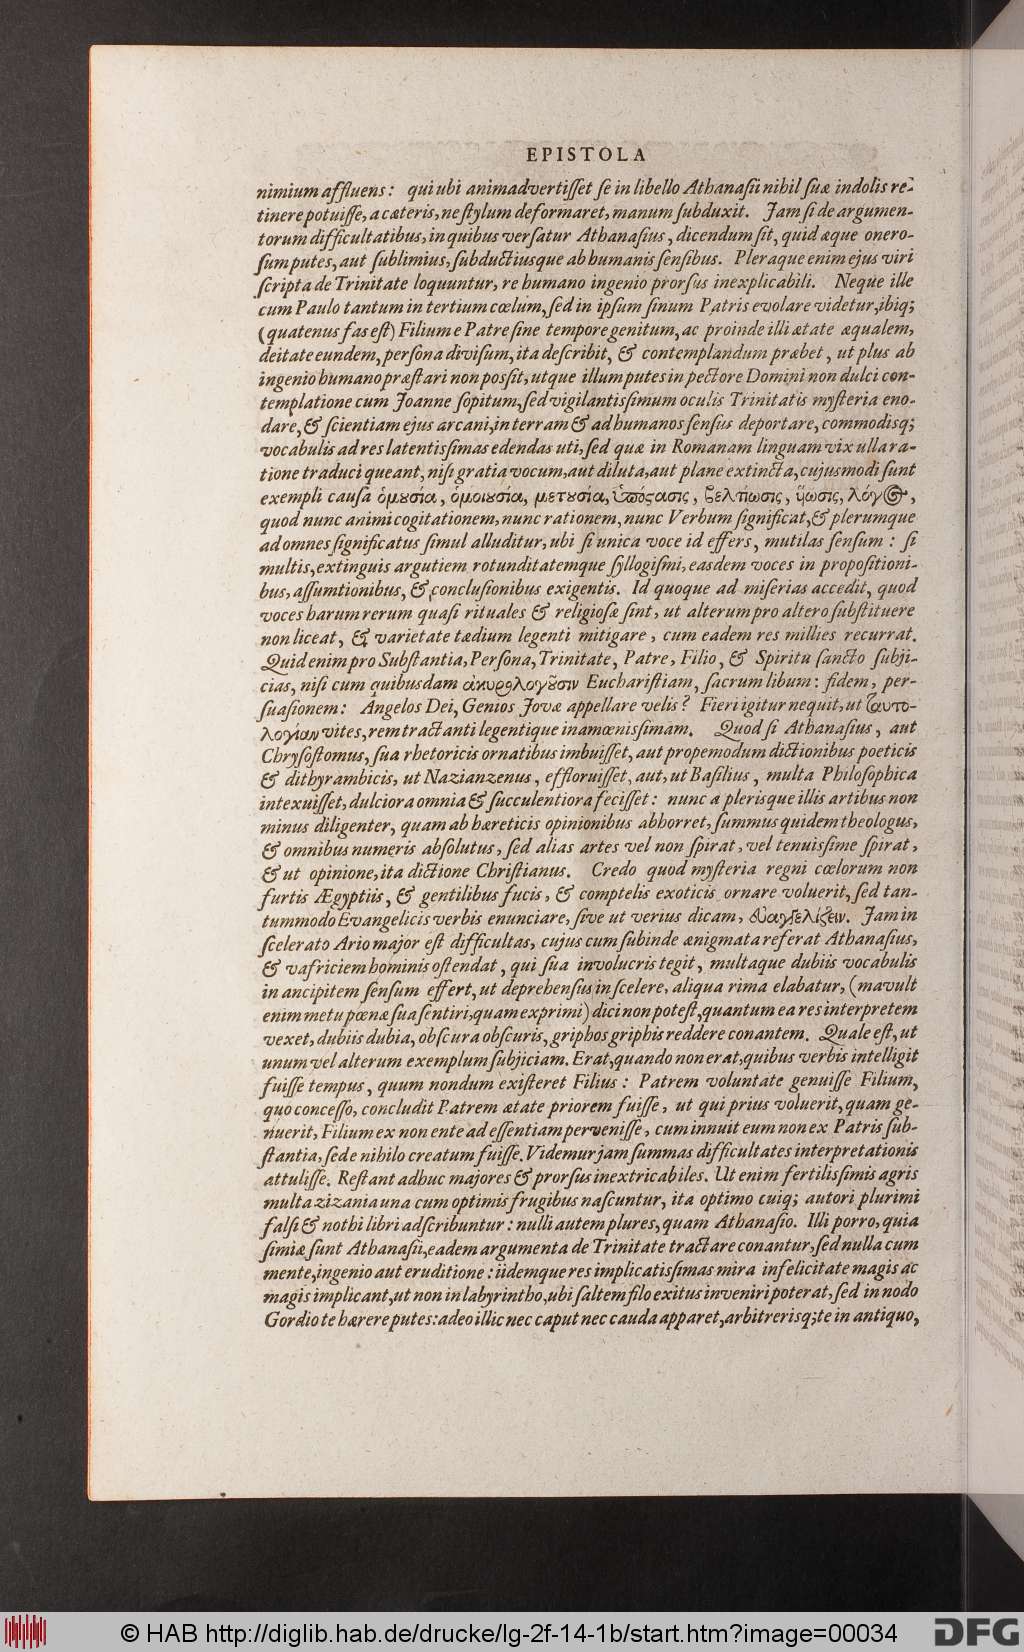 EPISTOLA
nimium affluens: qui ubi animadvertiſſet ſe in libello Athanaſii nihil ſuæ indolis re-
tinere potuiſſe, a cæteris, ne ſtylum deformaret, manum ſubduxit. Jam ſi de argumen-
torum difficultatibus, in quibus verſatur Athanaſius, dicendum ſit, quid æque onero-
ſum putes, aut ſublimius, ſubductiusque ab humanis ſenſibus. Pleraque enim ejus viri
ſcripta de Trinitate loquuntur, re humano ingenio prorſus inexplicabili. Neque ille
cum Paulo tantum in tertium cœlum, ſed in ipſum ſinum Patris evolare videtur, ibiq;
(quatenus fas eſt) Filium e Patre ſine tempore genitum, ac proinde illi ætate æqualem,
deitate eundem, perſona diviſum, ita deſcribit, & contemplandum præbet, ut plus ab
ingenio humano præſtari non poſſit, utque illum putes in pectore Domini non dulci con-
templatione cum Joanne ſopitum, ſed vigilantiſſimum oculis Trinitatis myſteria eno-
dare, & ſcientiam ejus arcani, in terram & ad humanos ſenſus deportare, commodisq;
vocabulis ad res latentiſſimas edendas uti, ſed quæ in Romanam linguam vix ulla ra-
tione traduci queant, niſi gratia vocum, aut diluta, aut plane extincta, cujusmodi ſunt
exempli cauſa ὁμουσία, ὁμοιουσία, μετουσία, ὑπόςασις, βελτίωσις, ἥωσις, λόγος,
quod nunc animi cogitationem, nunc rationem, nunc Verbum ſignificat, & plerumque
ad omnes ſignificatus ſimul alluditur, ubi ſi unica voce id effers, mutilas ſenſum: ſi
multis, extinguis argutiem rotunditatemque ſyllogiſmi, easdem voces in propoſitioni-
bus, aſſumtionibus, & concluſionibus exigentis. Id quoque ad miſerias accedit, quod
voces harum rerum quaſi rituales & religioſæ ſint, ut alterum pro altero ſubſtituere
non liceat, & varietate tædium legenti mitigare, cum eadem res millies recurrat.
Quid enim pro Subſtantia, Perſona, Trinitate, Patre, Filio, & Spiritu ſancto ſubji-
cias, niſi cum quibusdam ἀκυρολογοῦσιν Euchariſtiam, ſacrum libum: fidem, per-
ſuaſionem: Angelos Dei, Genios Jovæ appellare velis? Fieri igitur nequit, ut ταυτο-
λογίαν vites, rem tractanti legentique inamœniſſimam. Quod ſi Athanaſius, aut
Chryſoſtomus, ſua rhetoricis ornatibus imbuiſſet, aut propemodum dictionibus poeticis
& dithyrambicis, ut Nazianzenus, effloruiſſet, aut, ut Baſilius, multa Philoſophica
intexuiſſet, dulciora omnia & ſucculentiora feciſſet: nunc a plerisque illis artibus non
minus diligenter, quam ab hæreticis opinionibus abhorret, ſummus quidem theologus,
& omnibus numeris abſolutus, ſed alias artes vel non ſpirat, vel tenuiſſime ſpirat,
& ut opinione, ita dictione Chriſtianus. Credo quod myſteria regni cœlorum non
furtis Ægyptiis, & gentilibus fucis, & comptelis exoticis ornare voluerit, ſed tan-
tummodo Evangelicis verbis enunciare, ſive ut verius dicam, εὐαγγελίζειν. Jam in
ſcelerato Ario major eſt difficultas, cujus cum ſubinde ænigmata referat Athanaſius,
& vafriciem hominis oſtendat, qui ſua involucris tegit, multaque dubiis vocabulis
in ancipitem ſenſum effert, ut deprehenſus in ſcelere, aliqua rima elabatur, (mavult
enim metu pœnæ ſua ſentiri, quam exprimi) dici non poteſt, quantum ea res interpretem
vexet, dubiis dubia, obſcura obſcuris, griphos griphis reddere conantem. Quale eſt, ut
unum vel alterum exemplum ſubjiciam. Erat, quando non erat, quibus verbis intelligit
fuiſſe tempus, quum nondum exiſteret Filius: Patrem voluntate genuiſſe Filium,
quo conceſſo, concludit Patrem ætate priorem fuiſſe, ut qui prius voluerit, quam ge-
nuerit, Filium ex non ente ad eſſentiam perveniſſe, cum innuit eum non ex Patris ſub-
ſtantia, ſed e nihilo creatum fuiſſe. Videmur jam ſummas difficultates interpretationis
attuliſſe. Reſtant adhuc majores & prorſus inextricabiles. Ut enim fertiliſſimis agris
multa zizania una cum optimis frugibus naſcuntur, ita optimo cuiq; autori plurimi
falſi & nothi libri adſcribuntur: nulli autem plures, quam Athanaſio. Illi porro, quia
ſimiæ ſunt Athanaſii, eadem argumenta de Trinitate tractare conantur, ſed nulla cum
mente, ingenio aut eruditione: iidemque res implicatiſſimas mira infelicitate magis ac
magis implicant, ut non in labyrintho, ubi ſaltem filo exitus inveniri poterat, ſed in nodo
Gordio te hærere putes: adeo illic nec caput nec cauda apparet, arbitrerisq; te in antiquo,
© HAB http://diglib.hab.de/drucke/lg-2f-14-1b/start.htm?image=00034
DFG